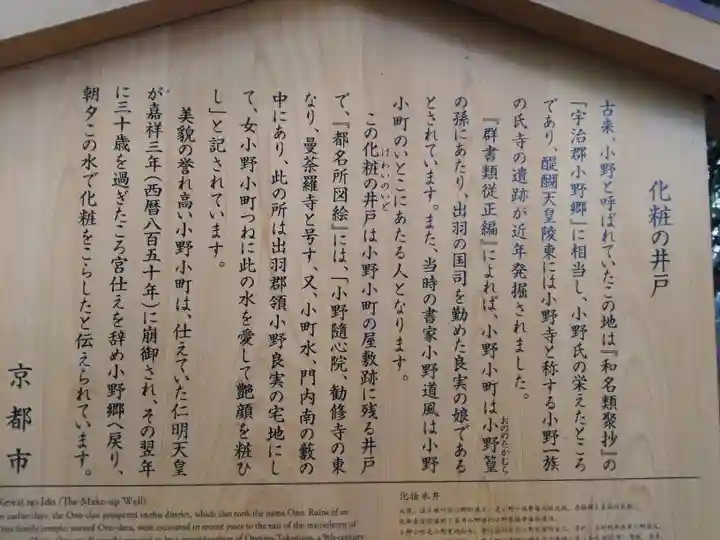 化粧の井戸
古来、小野と呼ばれていたこの地は『和名類聚抄』の
「宇治郡小野郷」に相当し、小野氏の栄えたところ
であり、醍醐天皇陵東には小野寺と称する小野一族
の氏寺の遺跡が近年発掘されました。
『群書類従正編』によれば、小野小町は小野篁
おののたかむら
の孫にあたり、出羽の国司を勤めた良実の娘である
とされています。また、当時の書家小野道風は小野
小町のいとこにあたる人となります。
この化粧の井戸は小野小町の屋敷跡に残る井戸
けわいのいど
で、『都名所図絵』には、「小野随心院、勧修寺の東
なり、曼荼羅寺と号す、又、小町水、門内南の藪の
中にあり、此の所は出羽郡領小野良実の宅地にし
て、女小野小町つねに此の水を愛して艶顔を粧ひ
し」と記されています。
美貌の誉れ高い小野小町は、仕えていた仁明天皇
が嘉祥三年(西暦八百五十年)に崩御され、その翌年
に三十歳を過ぎたころ宮仕えを辞め小野郷へ戻り、
朝夕この水で化粧をこらしたと伝えられています。
京都市
Kewai-no-Ido (The Make-up Well)
In earlier days, the Ono clan prospered in this district, which also took the name Ono. Ruins of an
Ono family temple, named Ono-dera, were excavated in recent years to the east of the mausoleum of
化妆水井